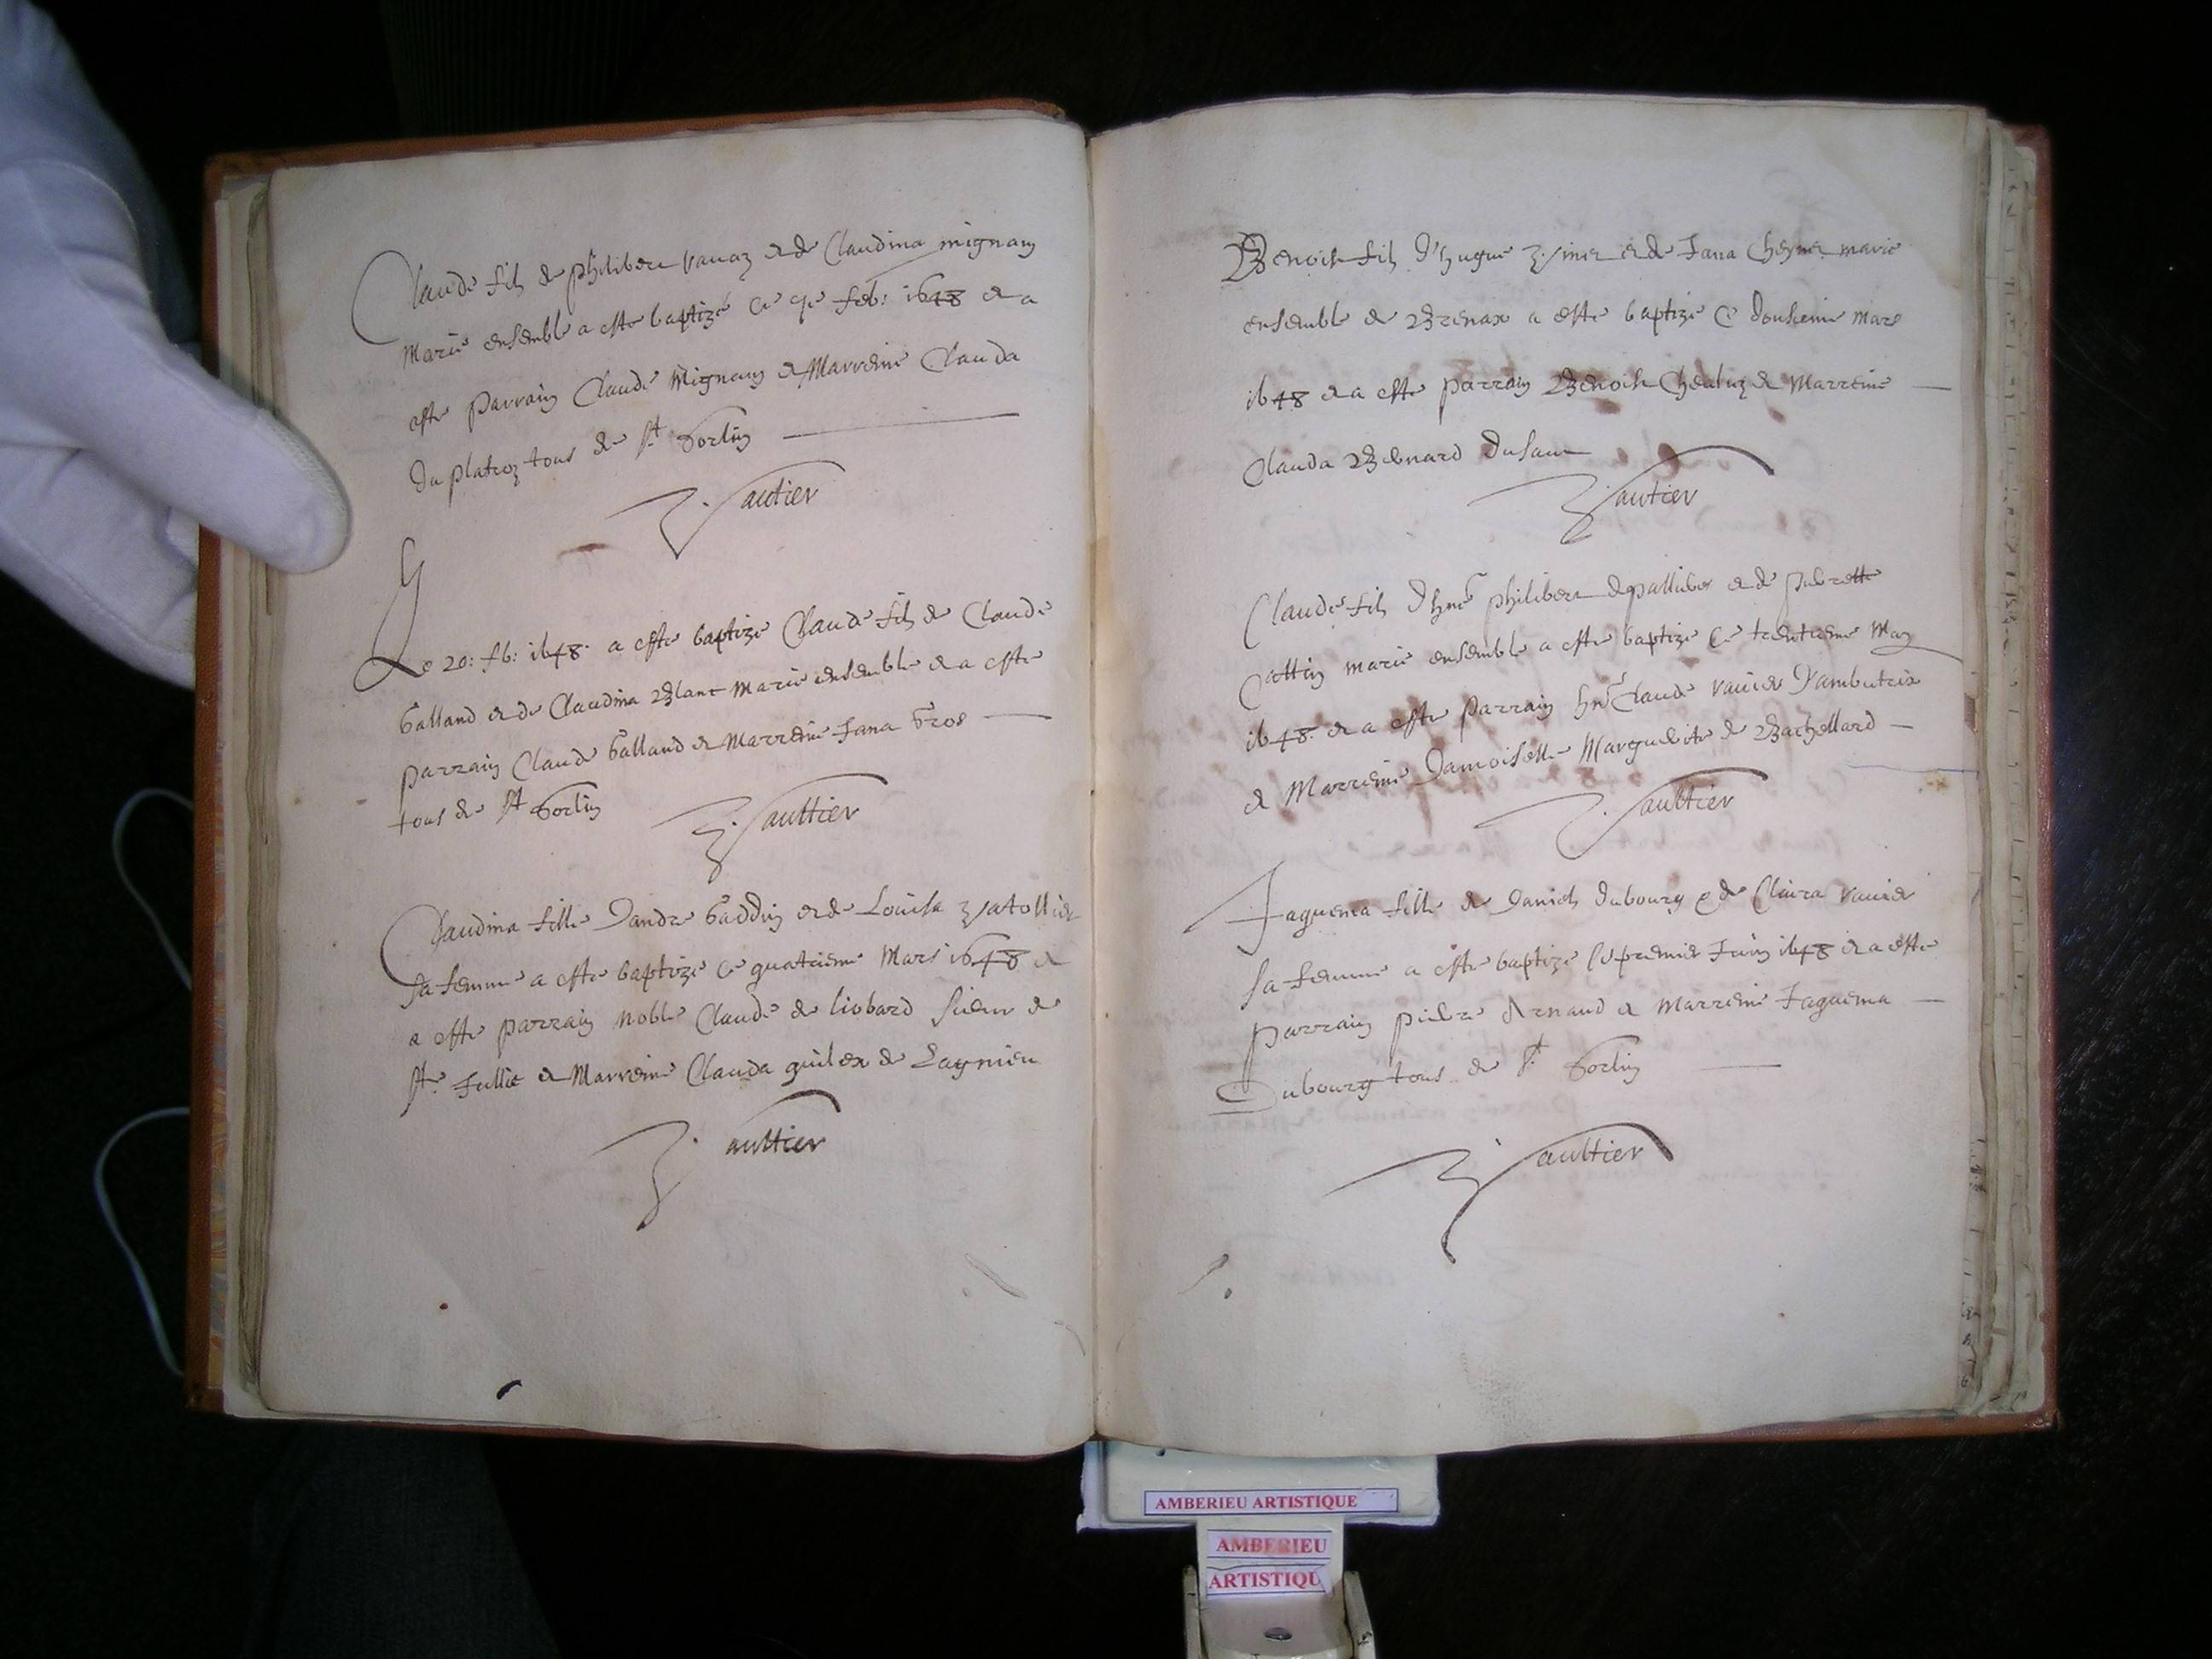 Claude fils de philibert vanaz et de Claudina mignam
marié ensemble a este baptizé ce 9e feb: 1648 et a
este parrain Claude Mignam et Marreine Clauda
du platroz tous de st Sorlin
Gautier
Le 20: fb: 1648 a este baptize Claude fils de Claude
Galland et de Claudina Blanc marié ensemble et a este
parrain Claude Galland et Marreine Jana Gros
tous de st Sorlin
Gaultier
Claudina fille Dandre Gaddin et de Louisa
sa femme a este baptize ce quatrieme Mars 1648 et
a este parrain noble Claude de liobard sieur de
ste Jullie et Marreine Clauda guilex de Lagnieu
Gaultier
Benoist fils d'hugue et de Jana marié
ensemble de Brenax a este baptizé ce dousieme mars
1648 et a este parrain Benoist et Marreine
Clauda Bernard dusaut
Gautier
Claude fils d'hne philibert depallieres et de pierrette
Cattin marié ensemble a este baptize ce trentieme May
1648 et a este parrain hne Claude Vanier d'ambutrix
et Marreine Damoiselle Marguerite de Bachellard
Gaultier
Jaquema fille de Daniel dubourg et de Claira Vanier
sa femme a este baptize le premier Juin 1648 et a este
parrain pierre Arnaud et Marreine Jaquema
Dubourg tous de st Sorlin
Gaultier
AMBERIEU ARTISTIQUE
AMBERIEU
ARTISTIQU